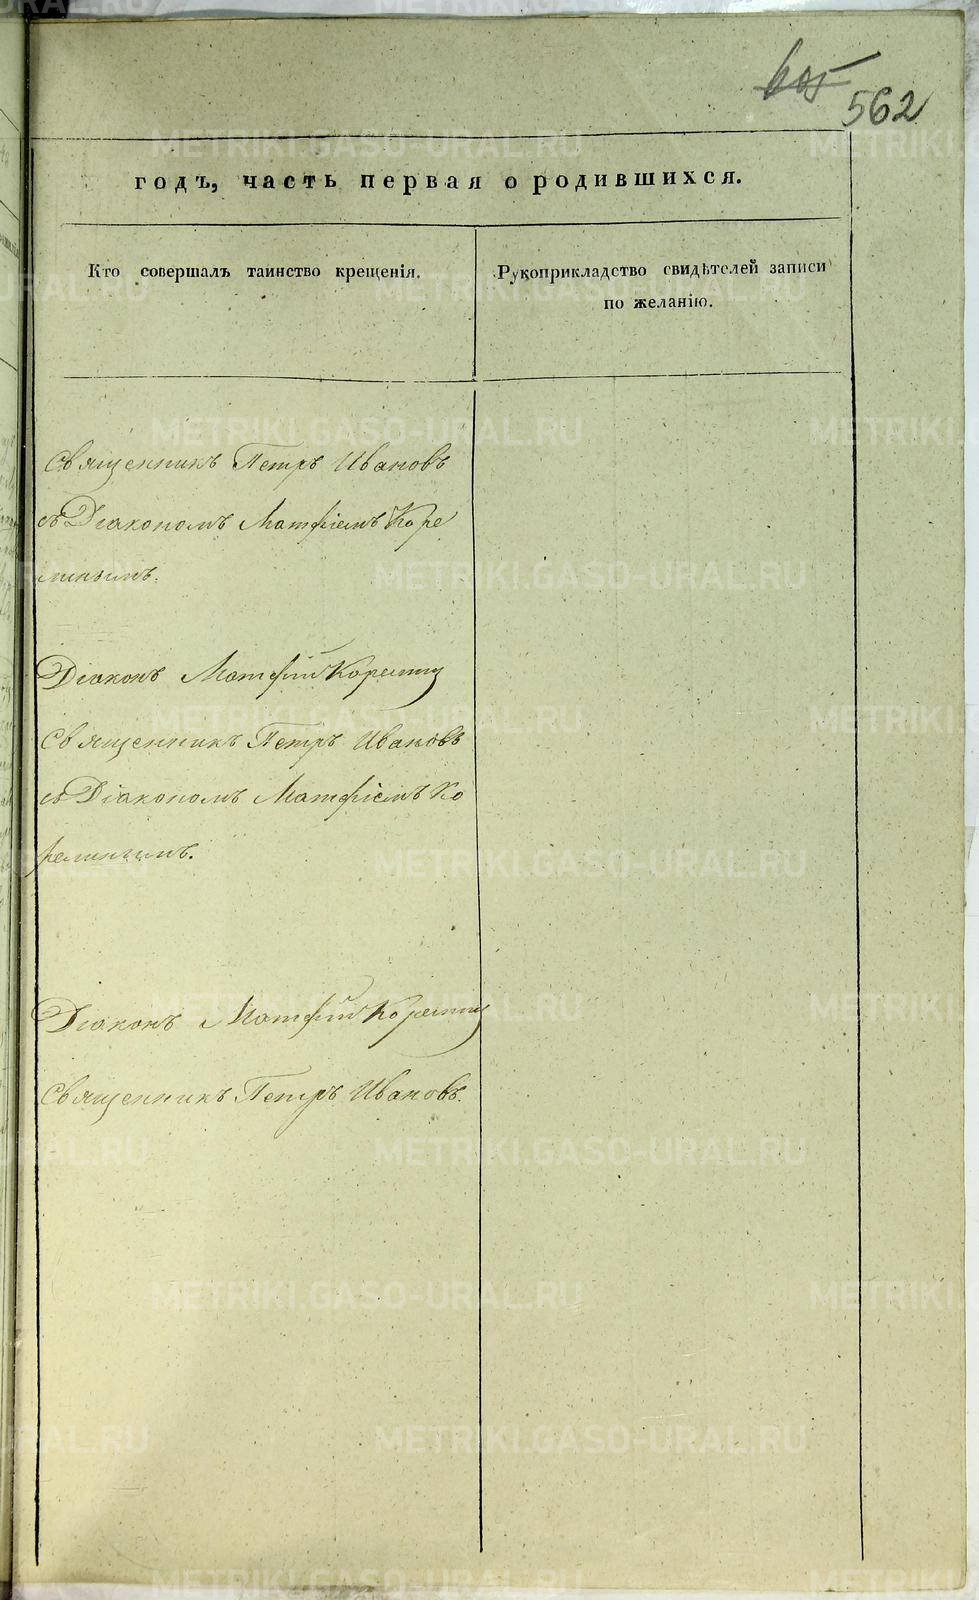 605
562
годъ, часть первая о родившихся.
Кто совершалъ таинство крещенія.
Рукоприкладство свидѣтелей записи
по желанію.
Священникъ Петръ Ивановъ
съ Діакономъ Матфіемъ Коре
линымъ.
Діаконъ Матфій Корелинъ
Священникъ Петръ Ивановъ
съ Діакономъ Матфіемъ Ко
релинымъ.
Діаконъ Матфій Корелинъ
Священникъ Петръ Ивановъ.
METRIKI.GASO-URAL.RU